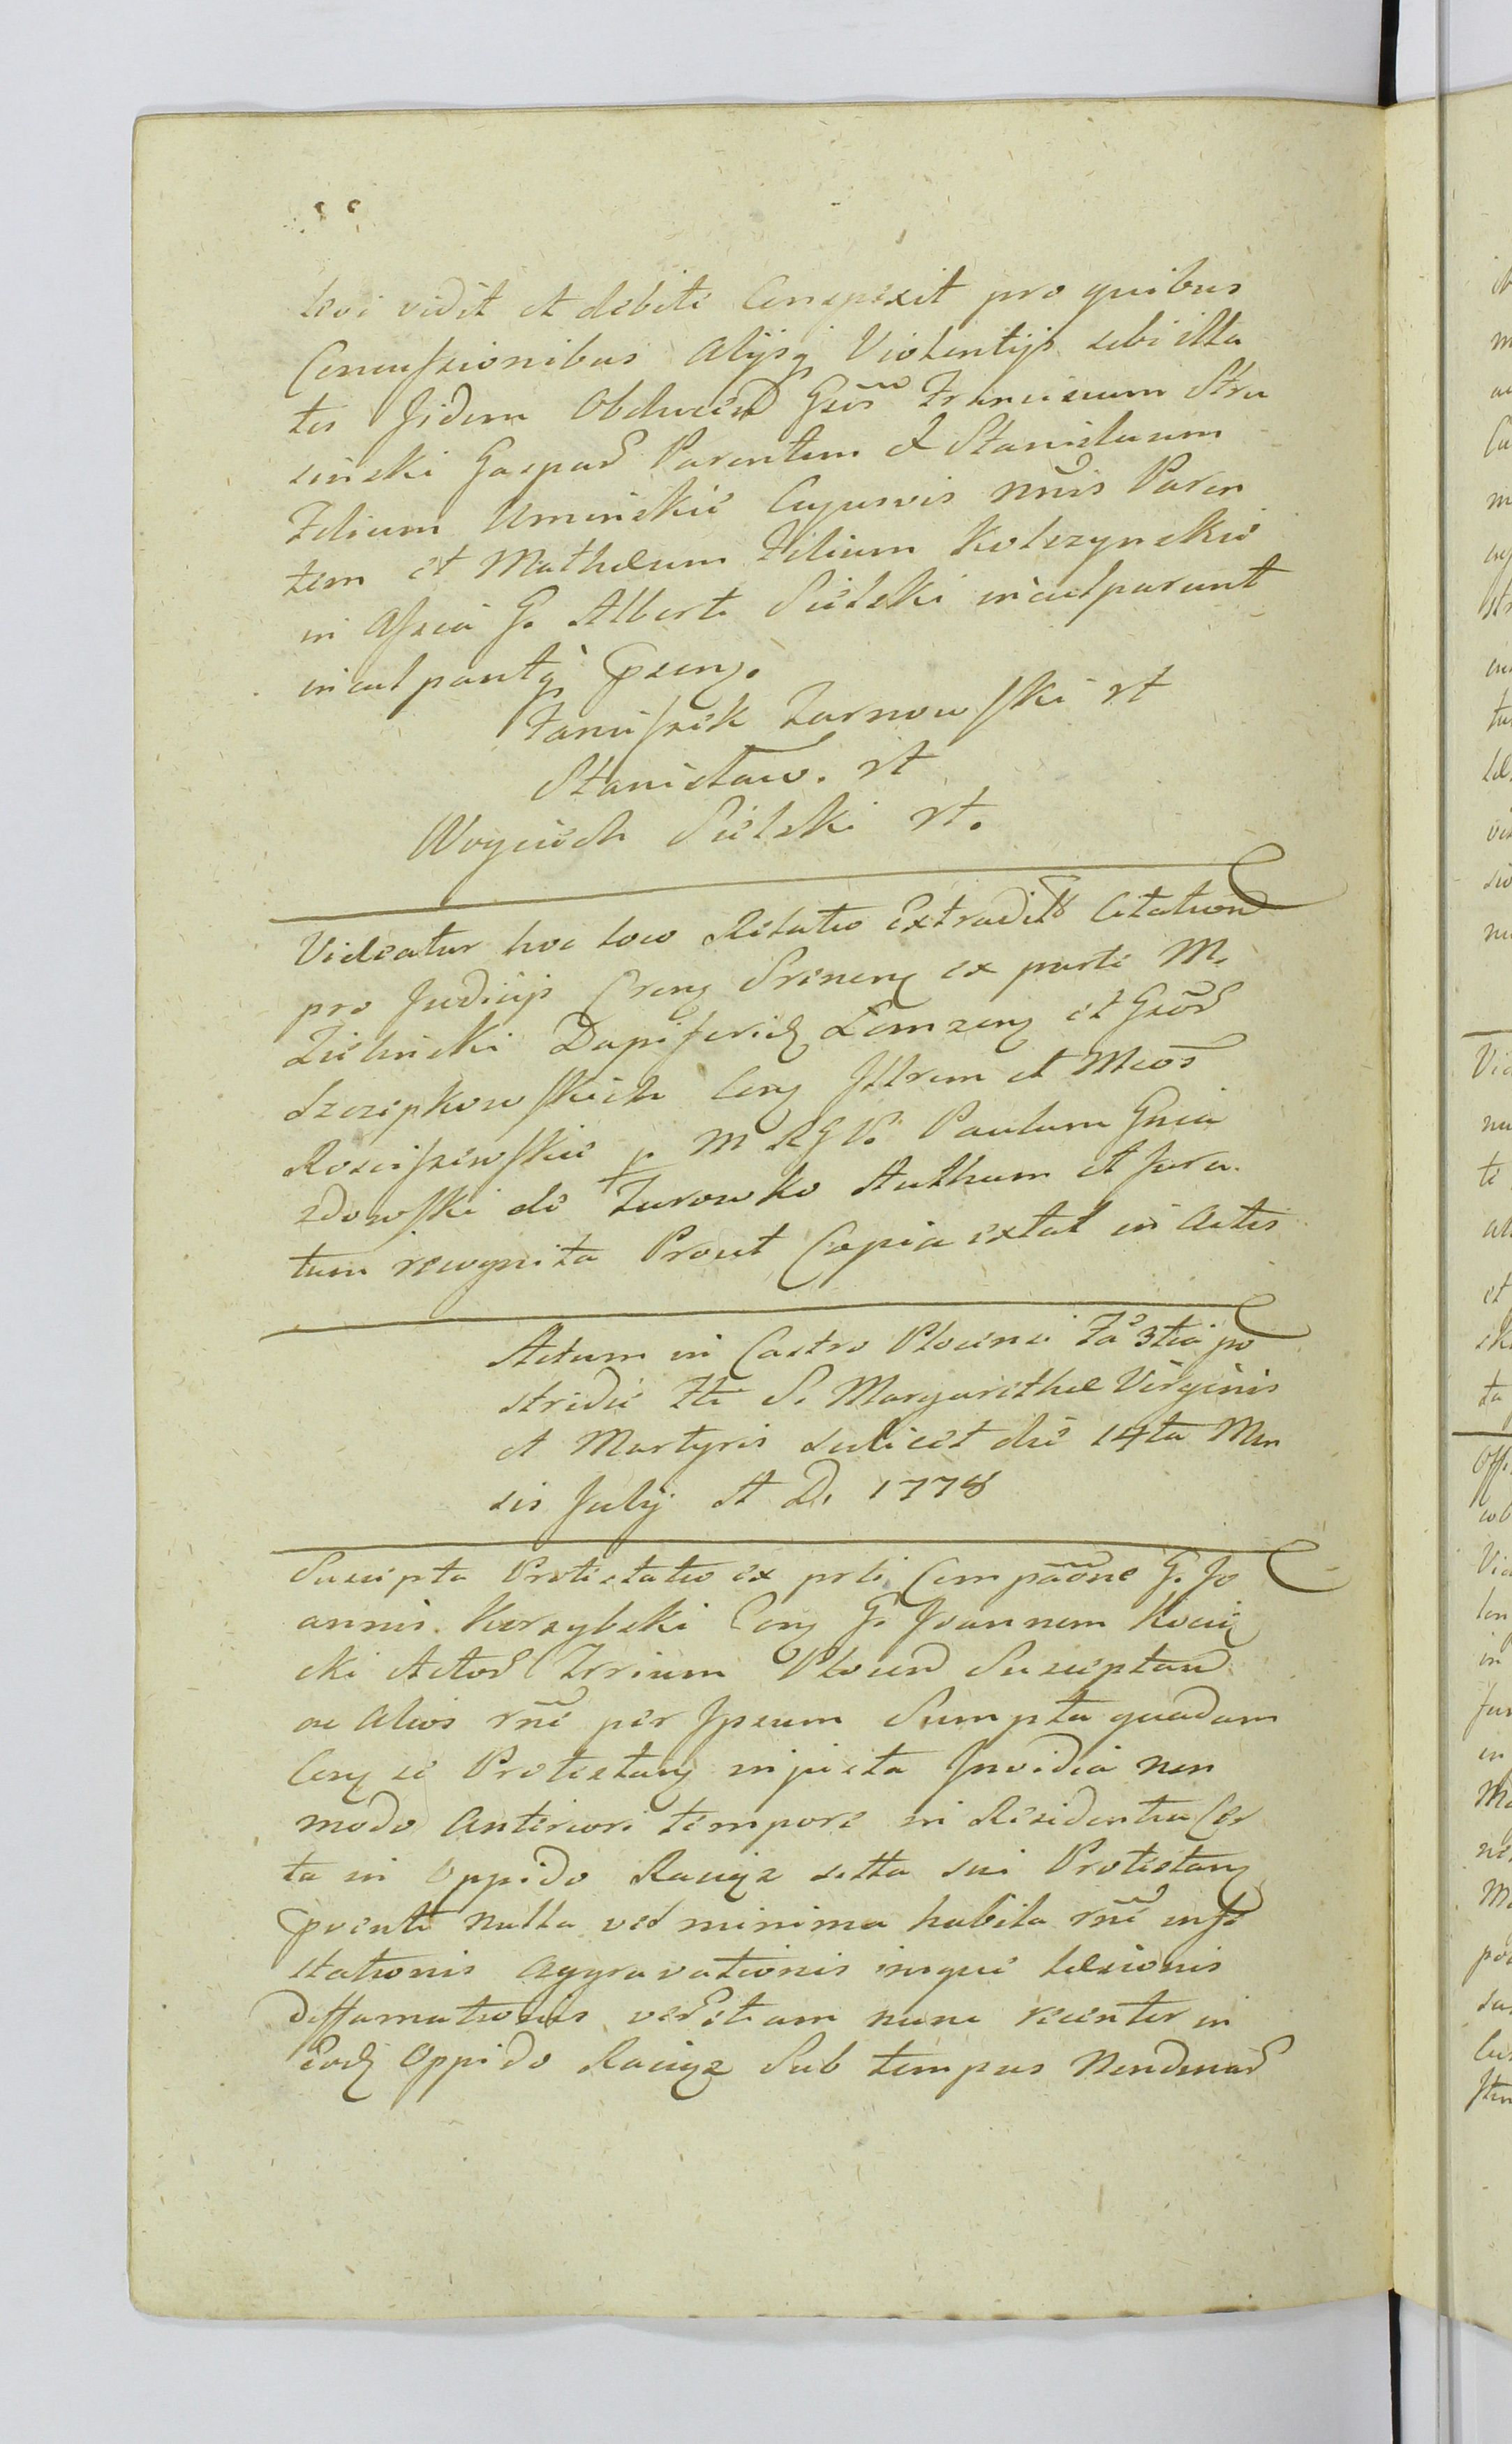 levi vidit et debite Conspexit pro quibus
Concussionibus Alijsq Violentijs sibi illa
tis fidem Obducend Gsos Franciscum Stru
sinski Gaspar Parentem & Stanislaum
Filium Uminskie Cujusvis nnis Paren
tem et Mathæum Filium Kolczynskie
in Assia G. Alberti Sielski inculparunt
inculpantq psenz.
Stanislaw. rt
Woyciech Sielski rt.
Videatur hoc loco Relatio Extradit Citation
pro Judicijs Crenz Srenenz ex parte M.
Zielinski Dapiferid Lomzenz et Gsor
Szczepkowskich Conz Illrem et Mcos
Rosciszewskie p. M R G V. Paulum Gnia
zdowski de Zurowko Authum et Jura
tum recognita Prout Copia extat in Actis
Actum in Castro Plocensi Fa 3tia po
stridie Fti S. Margarethæ Virginis
et Martyris scilicet die 14ta Men
sis Julij A D. 1778
Suscipta Protestatio ex prte Compaone G. Jo
annis Karzybski Conz G. Joannem Kociz
ski Actor Trrium Plocen Susceptand
ac Alios rne per Ipsum Sumpta quadam
Conz se Protestanz injusta Invidia non
modo Anteriori tempore in Residentia Cer
ta in Oppido Raciąz sitta sui Protestanz
pventi nulla vel minima habita rne infe
stationis aggravationis inque læsionis
Diffamationis ver Etiam nunc recenter in
Eodz Oppido Raciąz Sub tempus Nendinar